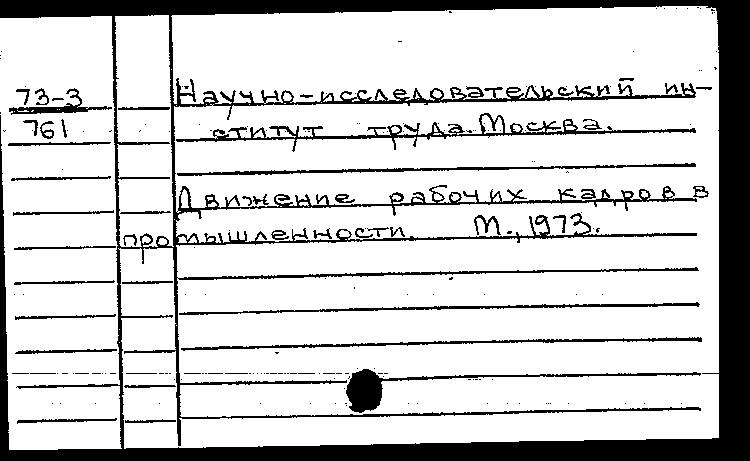 73-3
Научно-исследовательский ин-
761
ститут труда. Москва.
Движение рабочих кадров в
промышленности. М., 1973.